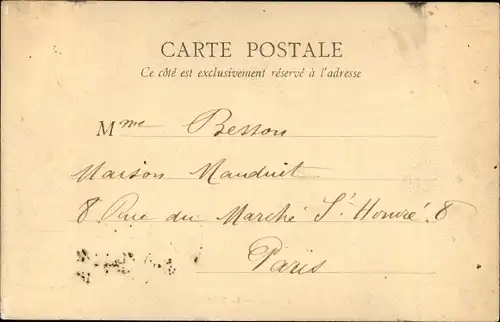 CARTE POSTALE
Ce côté est exclusivement réservé à l'adresse
Mme Besson
Maison Mauduit
8 Rue du Marché St Honoré 8
Paris